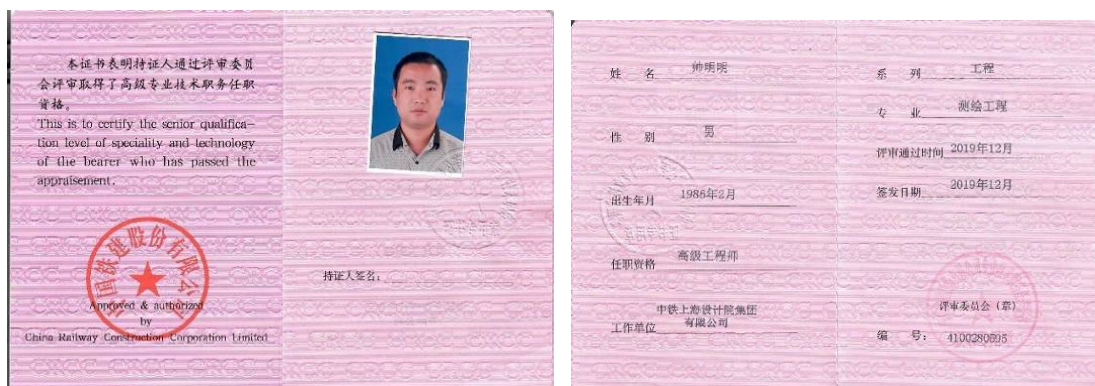 本证书表明持证人通过评审委员
会评审取得了高级专业技术职务任职
资格。
This is to certify the senior qualifica-
tion level of speciality and technology
of the bearer who has passed the
appraisement.
中国铁建股份有限公司
Approved & authorized
by
China Railway Construction Corporation Limited
持证人签名:
姓 名 帅明明
性 别 男
出生年月 1986年2月
任职资格 高级工程师
工作单位 中铁上海设计院集团
有限公司
系 列 工程
专 业 测绘工程
评审通过时间 2019年12月
签发日期 2019年12月
评审委员会(章)
编 号: 4100280695